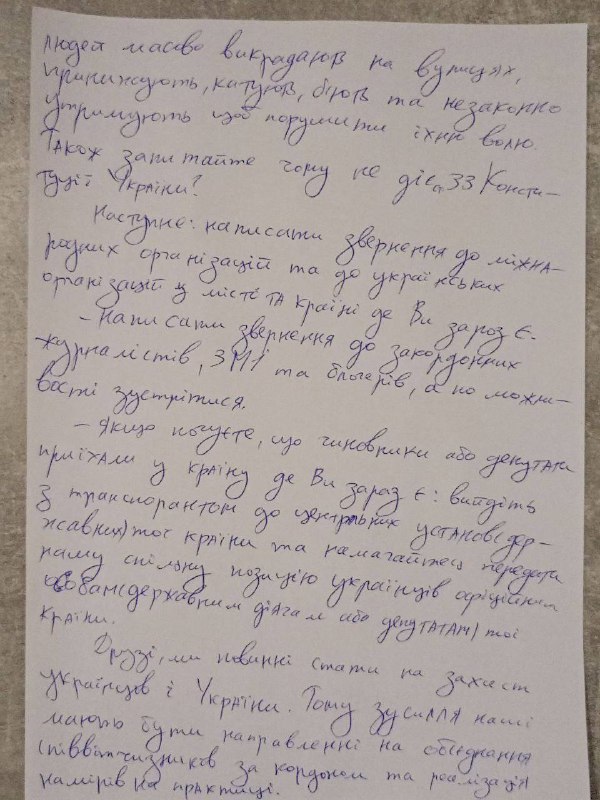 людей масово викрадають на вулицях,
принижують, катують, бють та незаконно
утримують щоб порушити їхню волю.
Також запитайте чому не діє ст. 33 Консти-
туції України?
Наступне: написати звернення до міжна-
родних організацій та до українських
організацій у місті та країні де Ви зараз є.
– Написати звернення до закордонних
журналістів, ЗМІ та блогерів, а по можли-
вості зустрітися.
– Якщо почуєте, що чиновники або депутати
приїхали у країну де Ви зараз є: вийдіть
з транспорантом до центральних установ(дер-
жавних) тої країни та намагайтесь передати
нашу спільну позицію українців офіційним
особам(державним діячам або депутатам) тої
країни.
Друззі, ми повинні стати на захист
українців і України. Тому зусилля наші
мають бути направленні на обєднання
співвітчизників за кордоном та реалізація
намірів на практиці.